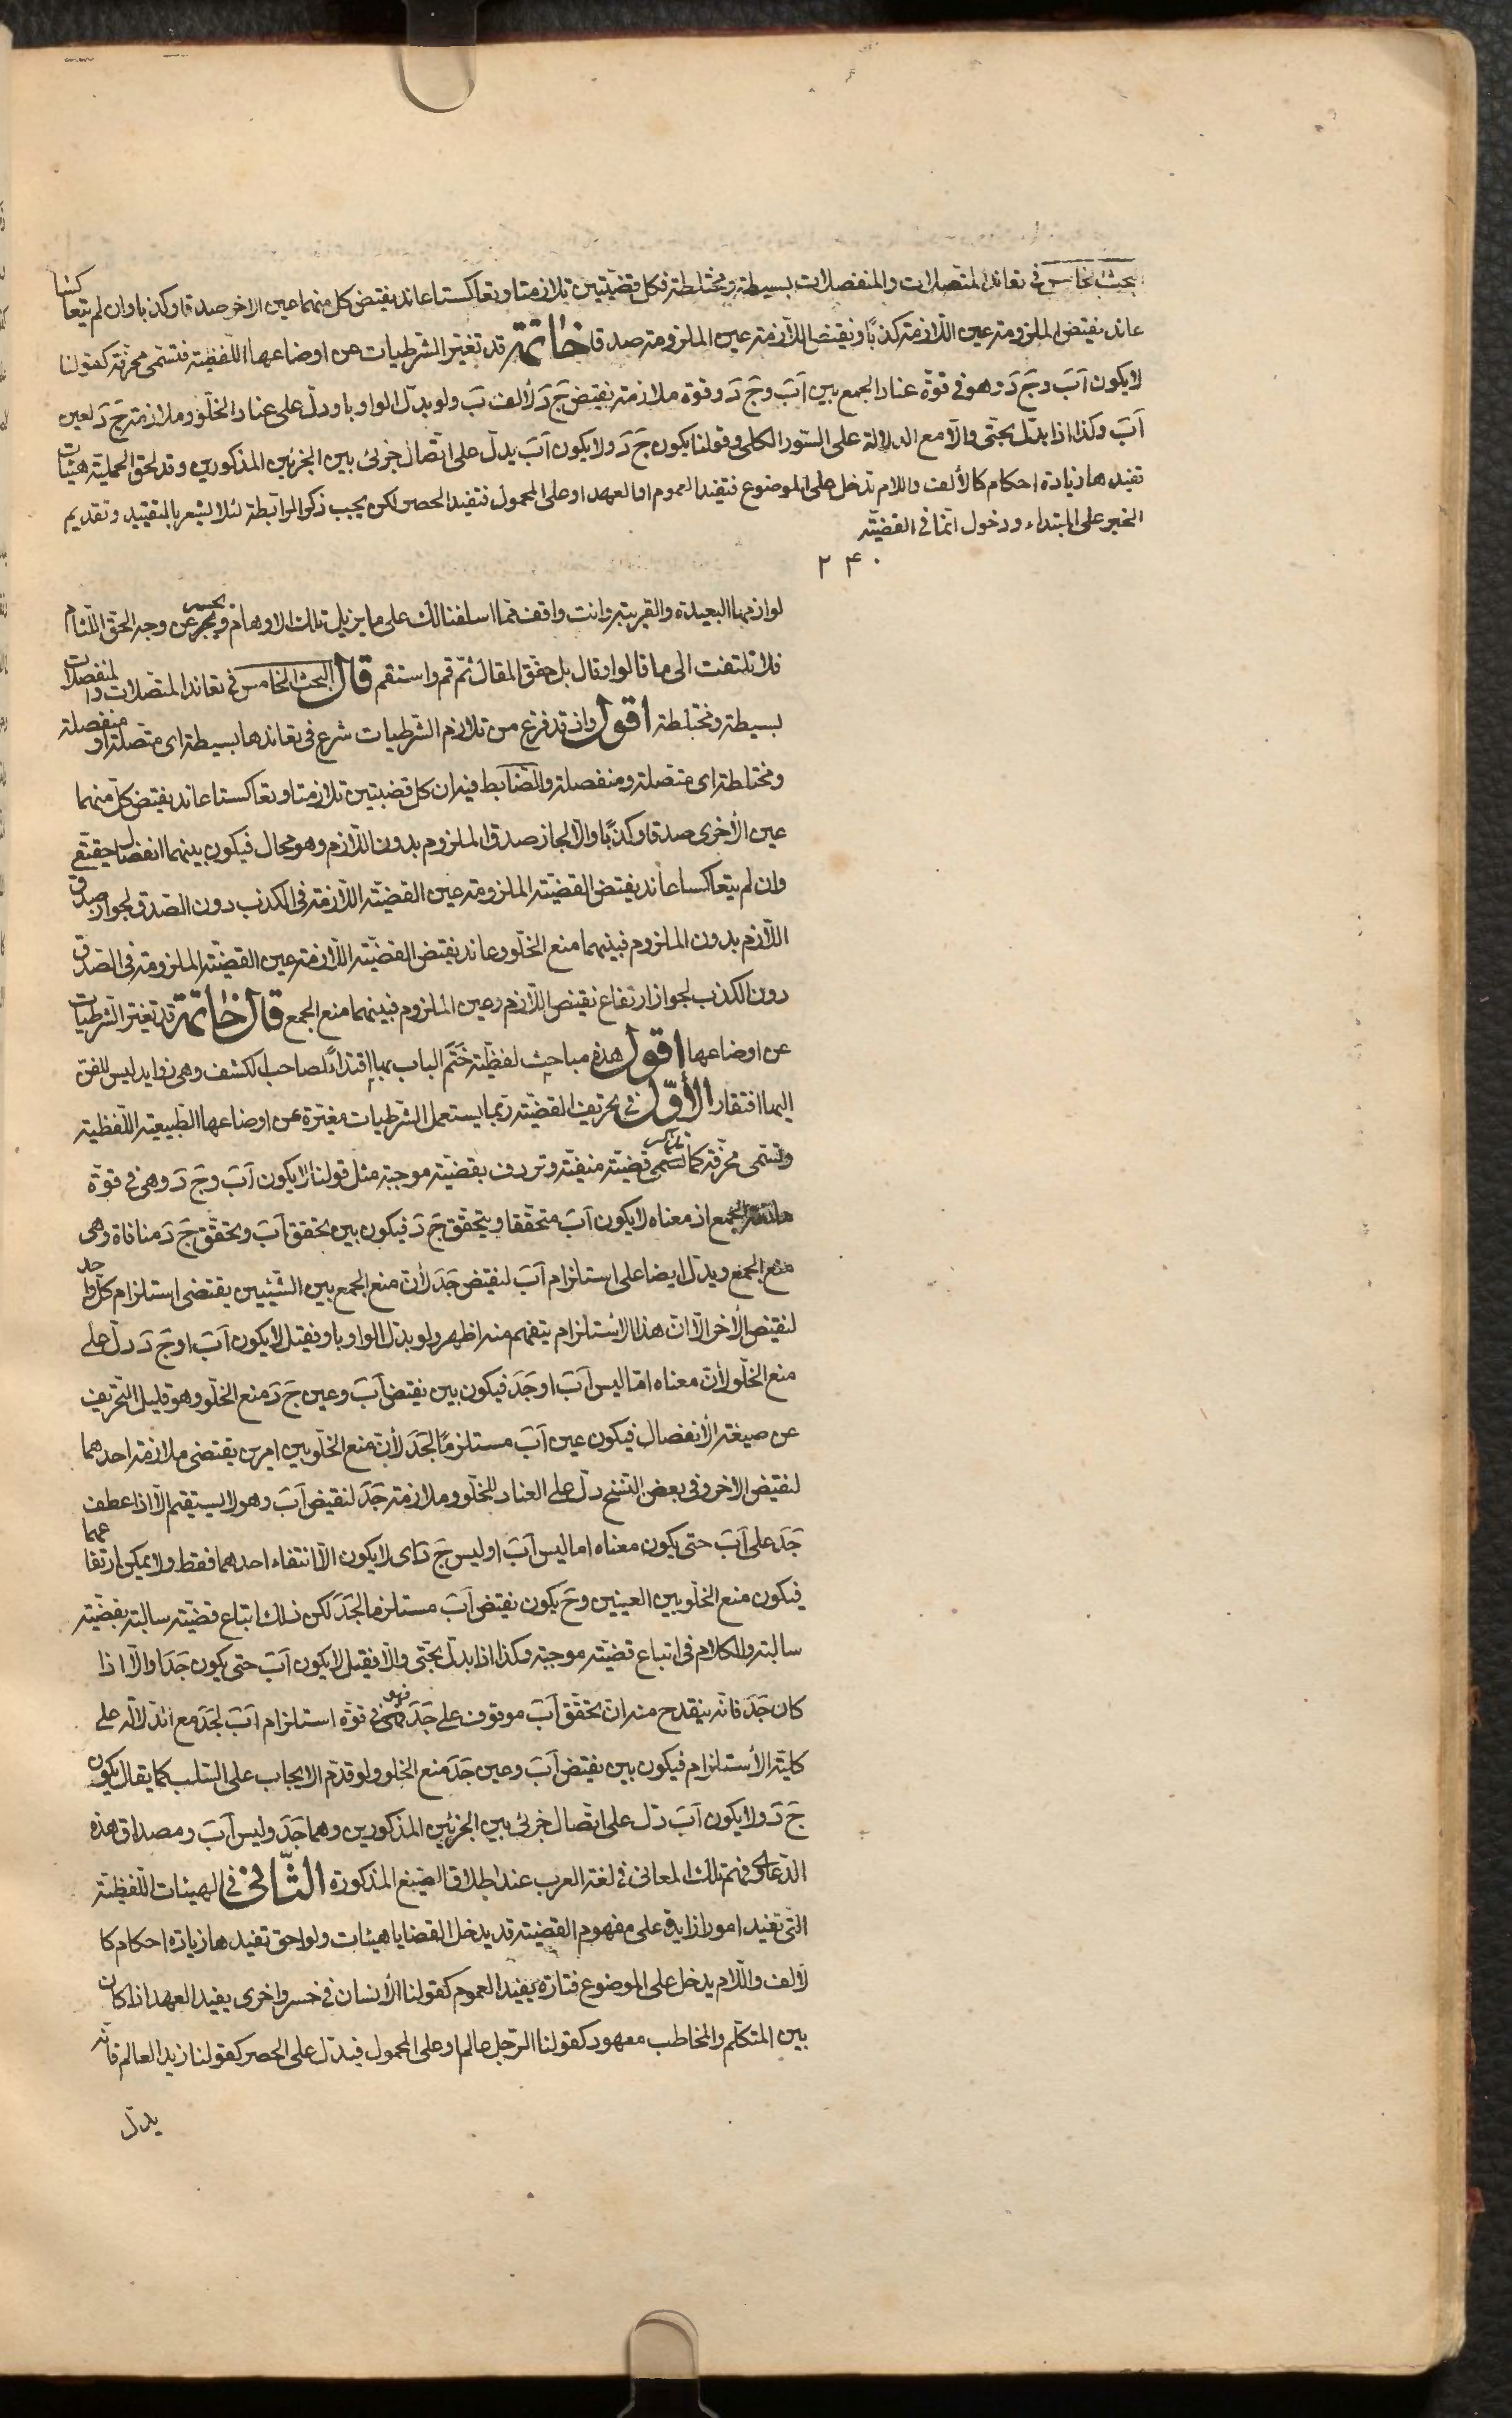 البحث الخامس في تعاند المتصلات والمنفصلات بسيطة ومختلطة فكل قضيتين تلازمتا وتعاكستا عاند نقيض كل منهما عين الاخر صدقا وكذبا وان لم يتعاكسا
عاند نقيض الملزومة عين اللازمة كذبًا ونقيض اللازمة عين الملزومة صدقا خاتمة قد تغير الشرطيات عن اوضاعها اللفظية فتسمى محرفة كقولنا
لا يكون آب وج د وهو في قوة عناد الجمع بين آب وج د وقوة ملازمة نقيض ج د لألف ب ولو بدل الواو باو دل على عناد الخلو وملازمة ج د لعين
آب وكذا اذا بدل بحتى والا مع الدلالة على السور الكلى وقولنا يكون ج د ولا يكون آب يدل على اتصال جزئى بين الجزئين المذكورين وقد يلحق الحملية هيئات
تفيدها زيادة احكام كالألف واللام تدخل على الموضوع فتفيد العموم او العهد او على المحمول فتفيد الحصر لكن يجب ذكر الرابطة لئلا يشعر بالتقييد وتقديم
الخبر على المبتداء ودخول انما في القضية
۲۴۰
لوازمها البعيدة والقريبة وانت واقف مما اسلفنا لك على ما يزيل تلك الاوهام ويحسر عن وجه الحق اللثام
فلا تلتفت الى ما قالوا وقال بل حقق المقال ثم قم واستقم قال البحث الخامس في تعاند المتصلات والمنفصلات
بسيطة ومختلطة اقول واذ قد فرغ من تلازم الشرطيات شرع في تعاندها بسيطة اى متصلة او منفصلة
ومختلطة اى متصلة ومنفصلة والضابط فيه ان كل قضيتين تلازمتا وتعاكستا عاند نقيض كل منهما
عين الأخرى صدقا وكذبًا والا لجاز صدق الملزوم بدون اللازم وهو محال فيكون بينهما انفصال حقيقي
وان لم يتعاكسا عاند نقيض القضية الملزومة عين القضية اللازمة في الكذب دون الصدق لجواز صدق
اللازم بدون الملزوم فبينهما منع الخلو وعاند نقيض القضية اللازمة عين القضية الملزومة في الصدق
دون الكذب لجواز ارتفاع نقيض اللازم وعين الملزوم فبينهما منع الجمع قال خاتمة قد تغير الشرطيات
عن اوضاعها اقول هذه مباحث لفظية ختم الباب بها اقتداءً لصاحب الكشف وهى زوايد ليس للفن
اليها افتقار الأول في تحريف القضية ربما يستعمل الشرطيات مغيرة عن اوضاعها الطبيعية اللفظية
وتسمى محرفة كما قضية منفية وتردف بقضية موجبة مثل قولنا لا يكون آب وج د وهى في قوة
مانعة الجمع اذ معناه لا يكون آب متحققا ويتحقق ج د فيكون بين تحقق آب وتحقق ج د منافاة وهى
منع الجمع ويدل ايضا على استلزام آب لنقيض جد لأن منع الجمع بين الشيئين يقتضى استلزام كل واحد
لنقيض الأخر الا ان هذا الاستلزام يتفهم منه اظهر ولو بدل الواو باو فقيل لا يكون آب او ج د دل على
منع الخلو لأن معناه اما ليس آب او جد فيكون بين نقيض آب وعين ج د منع الخلو وهو قليل التحريف
عن صيغة الأنفصال فيكون عين آب مستلزمًا لجد لأن منع الخلو بين امرين يقتضى ملازمة احدهما
لنقيض الاخر وفي بعض النسخ دل على العناد للخلو وملازمة جد لنقيض آب وهو لا يستقيم الا اذا عطف
جد على آب حتى يكون معناه اما ليس آب او ليس ج د اى لا يكون الا انتفاء احدهما فقط ولا يمكن ارتفاعهما
فيكون منع الخلو بين العينين وح يكون نقيض آب مستلزما لجد لكن ذلك اتباع قضية سالبة بقضية
سالبة والكلام في اتباع قضية موجبة وكذا اذا بدل بحتى والا فقيل لا يكون آب حتى يكون جد او الا اذا
كان جد فانه ينقدح منه ان تحقق آب موقوف على جد فهو في قوة استلزام آب لجد مع الدلالة على
كلية الأستلزام فيكون بين نقيض آب وعين جد منع الخلو ولو قدم الايجاب على السلب كما يقال يكون
ج د ولا يكون آب دل على اتصال جزئى بين الجزئين المذكورين وهما جد وليس آب ومصداق هذه
الدعاوى فهم تلك المعانى في لغة العرب عند اطلاق الصيغ المذكورة الثانى في الهيئات اللفظية
التي تفيد امورا زايدة على مفهوم القضية قد يدخل القضايا هيئات ولواحق تفيدها زيادة احكام كا
لألف واللام يدخل على الموضوع فتارة يفيد العموم كقولنا الأنسان في خسر واخرى يفيد العهد اذا كان
بين المتكلم والمخاطب معهود كقولنا الرجل عالم او على المحمول فيدل على الحصر كقولنا زيد العالم فانه
يدل